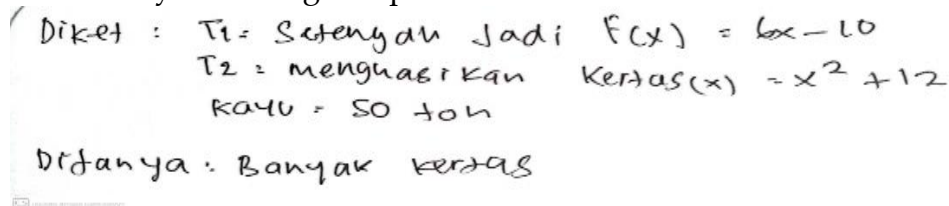 Diket : T1 = Setengah Jadi F(x) = 6x - 10
T2 = menghasikan Kertas(x) = x² + 12
Kayu = 50 ton
Ditanya : Banyak kertas